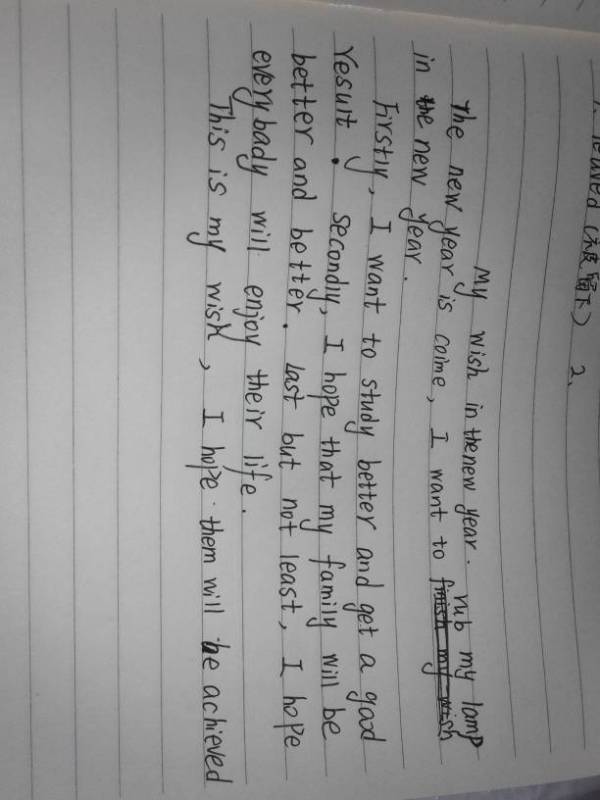 1. leaved (未被留下) 2.
My wish in the new year.
rub my lamp
The new year is coime, I want to finish my wish
in the new year.
Firstly, I want to study better and get a good
resuit. secondly, I hope that my family will be
better and better. last but not least, I hope
everybady will enjoy their life.
This is my wish, I hope them will be achieved